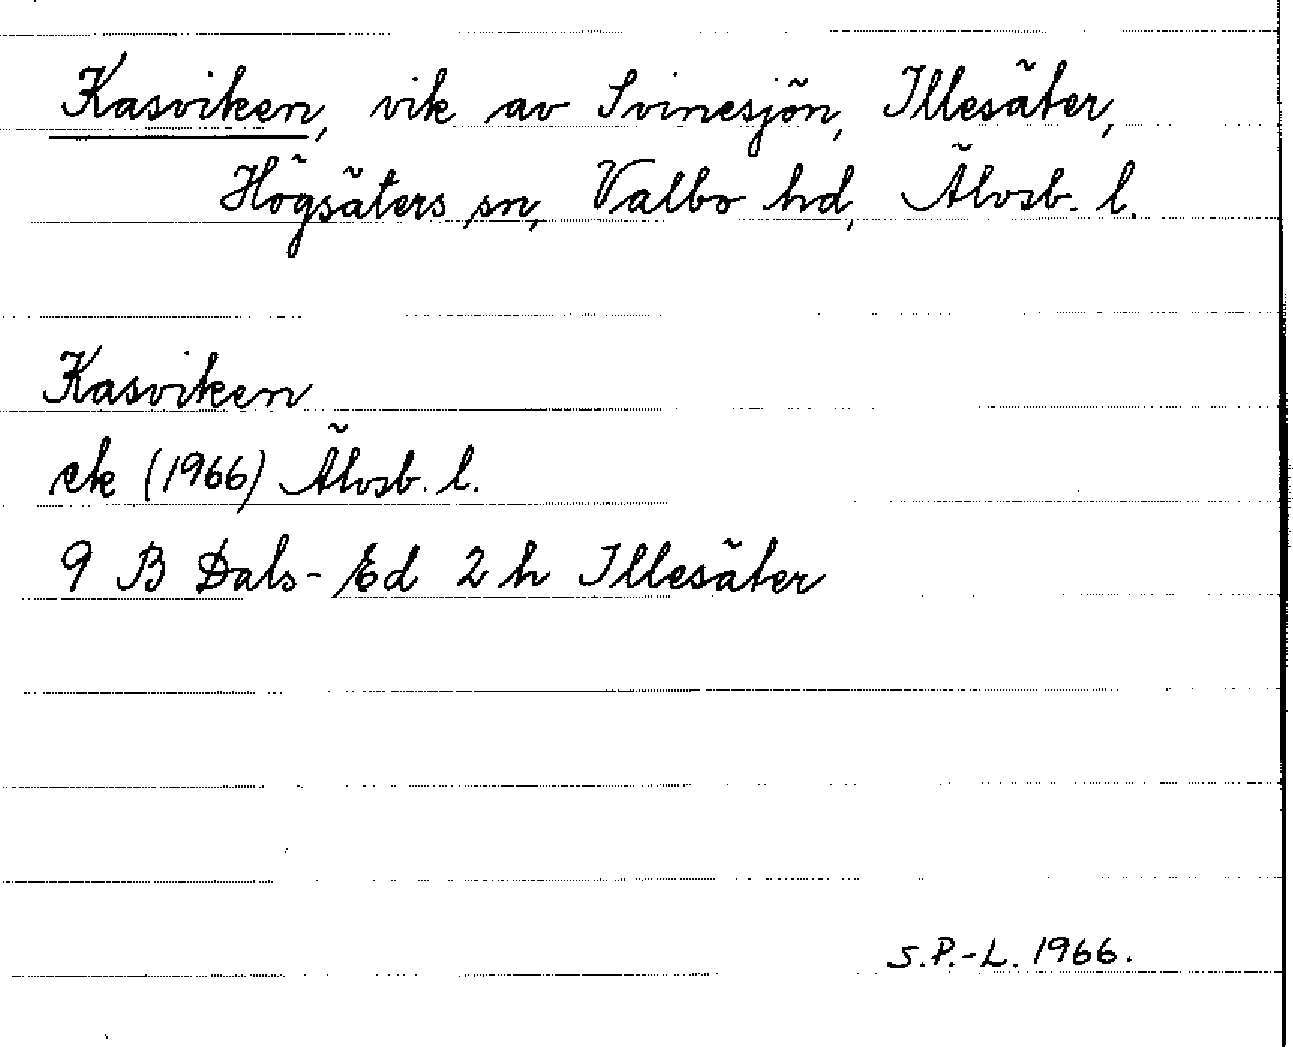 Kasviken, vik av Svinesjön, Illesäter,
Högsäters sn, Valbo hd, Älvsb. l.
Kasviken
ek (1966) Älvsb. l.
9 B Dals-Ed 2 h Illesäter
S.P.-L. 1966.